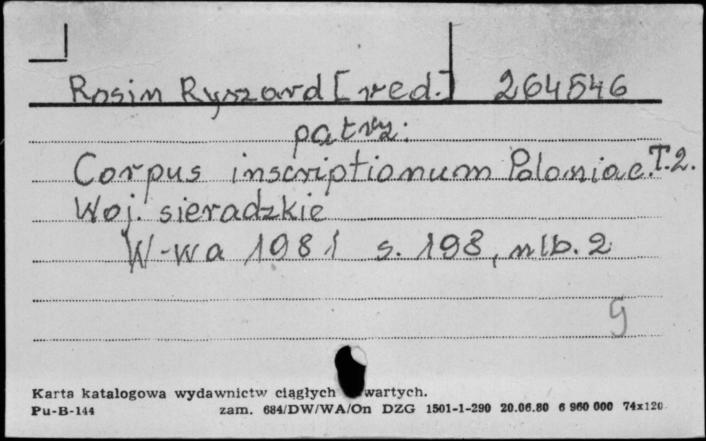 Rosin Ryszard [red.] 264546
patrz:
Corpus inscriptionum Poloniae. T.2.
Woj. sieradzkie
W-wa 1981 s. 198, nlb. 2
g
Karta katalogowa wydawnictw ciągłych wartych.
Pu-B-144 zam. 684/DW/WA/On DZG 1501-1-290 20.06.80 6 960 000 74x120